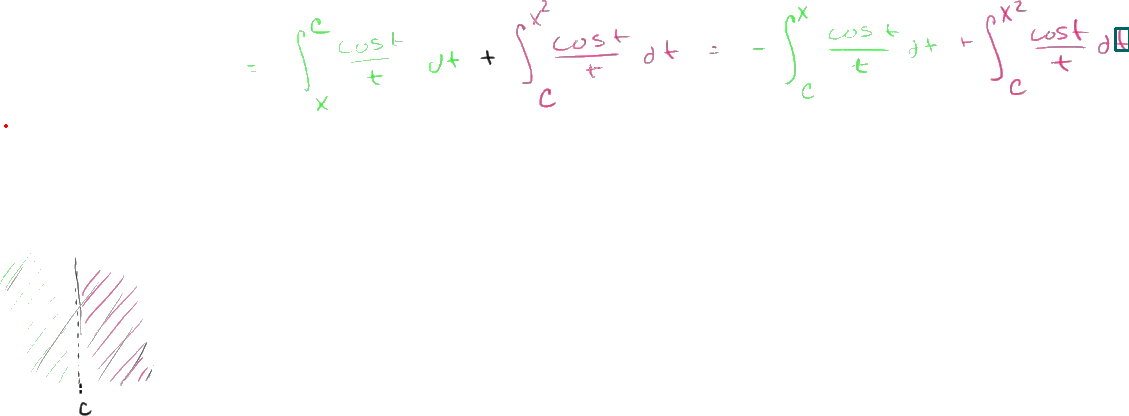 = ∫_x^c cost/t dt + ∫_c^{x^2} cost/t dt = - ∫_c^x cost/t dt + ∫_c^{x^2} cost/t dt
c